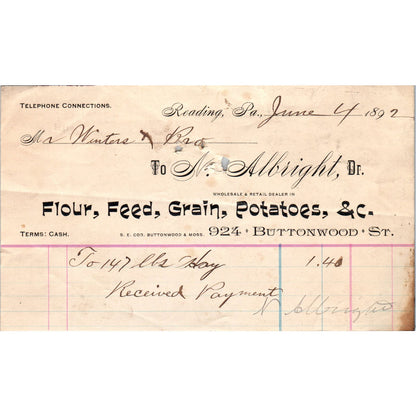 TELEPHONE CONNECTIONS.
Reading, Pa., June 4 1892
Mr Winters & Bro
To N. Albright, Dr.
WHOLESALE & RETAIL DEALER IN
Flour, Feed, Grain, Potatoes, &c.
TERMS: CASH. S. E. COR. BUTTONWOOD & MOSS. 924 BUTTONWOOD ST.
To 147 lbs Hay 1.40
Received Payment
N Albright